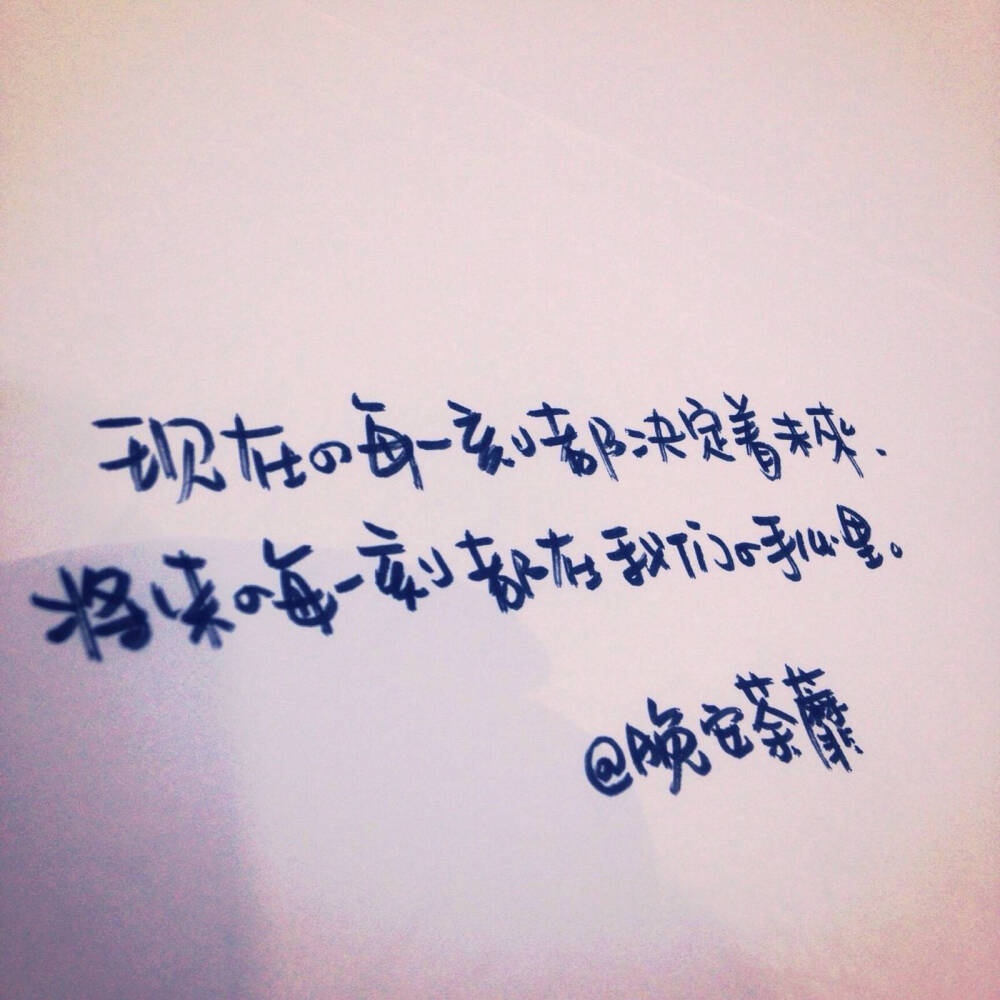 现在的每一刻都决定着未来、
将来的每一刻都在我们的手心里。
@晚安荼蘼